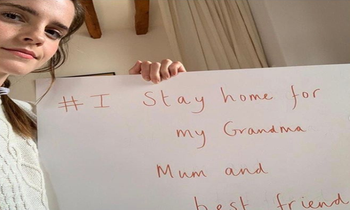 # I Stay home for
my Grandma
Mum and
best friend